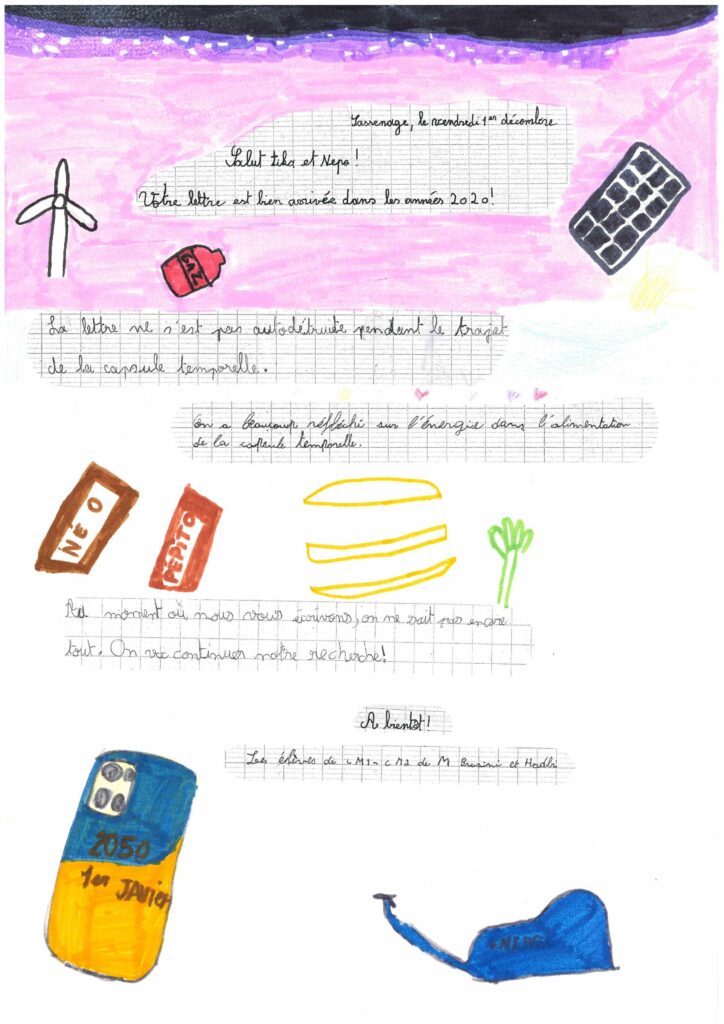 Sassenage, le vendredi 1er décembre
Salut Tika et Nepo !
Votre lettre est bien arrivée dans les années 2020 !
GAZ
La lettre ne s'est pas autodétruite pendant le trajet
de la capsule temporelle.
On a beaucoup réfléchi sur l'énergie dans l'alimentation
de la capsule temporelle.
NÉO
PÉPITO
Au moment où nous vous écrivons, on ne sait pas encore
tout. On va continuer notre recherche !
A bientôt !
Les élèves de CM1-CM2 de M et Hadbi
2050
1er JANVIER